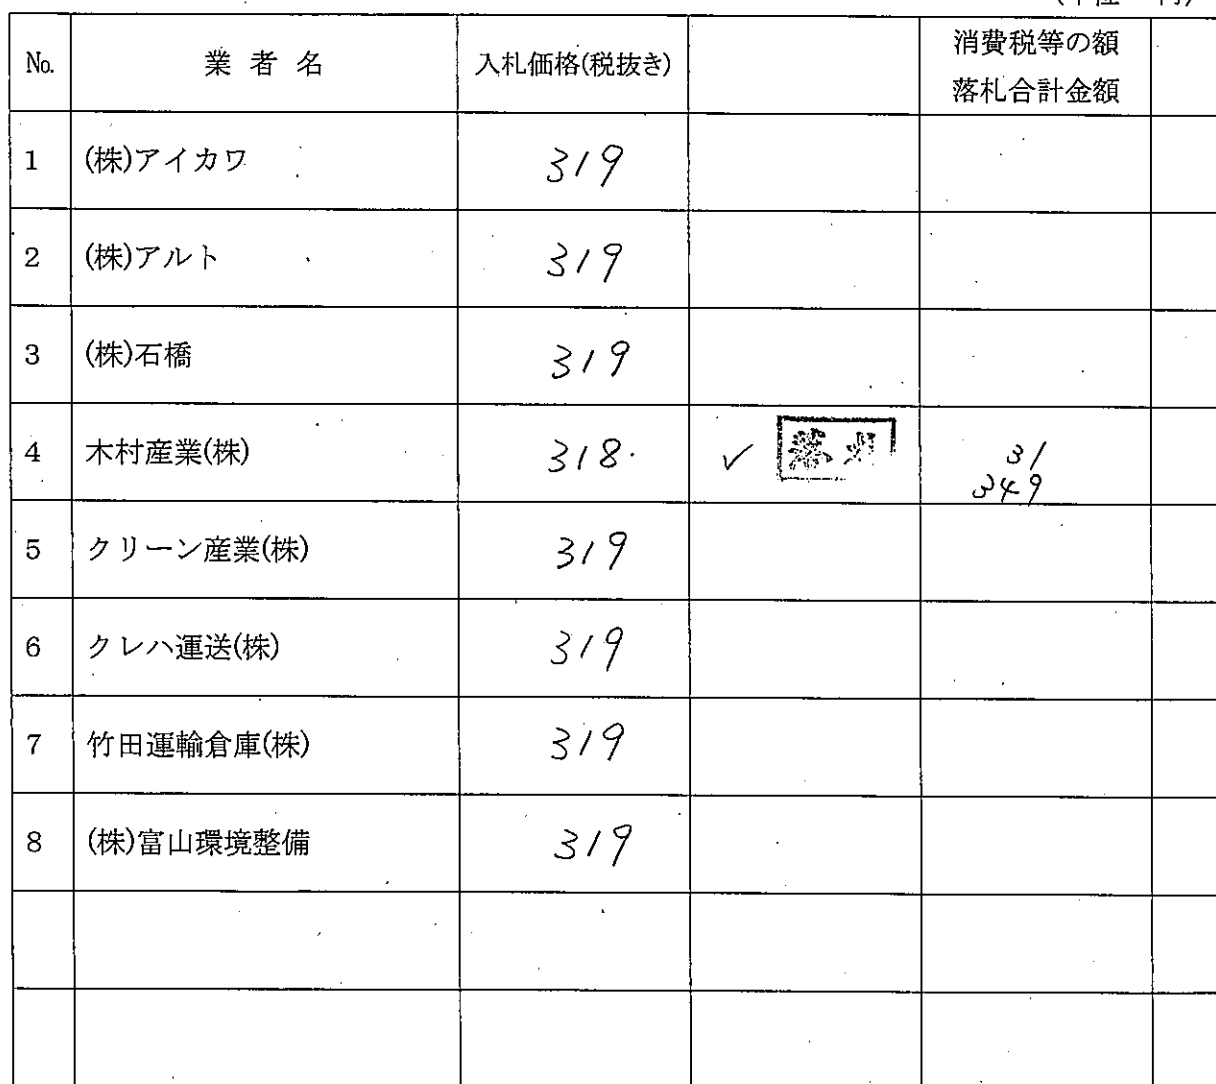 No. 業者名 入札価格(税抜き) 消費税等の額
落札合計金額
1 (株)アイカワ 319
2 (株)アルト 319
3 (株)石橋 319
4 木村産業(株) 318. ✓ 落札 31
349
5 クリーン産業(株) 319
6 クレハ運送(株) 319
7 竹田運輸倉庫(株) 319
8 (株)富山環境整備 319